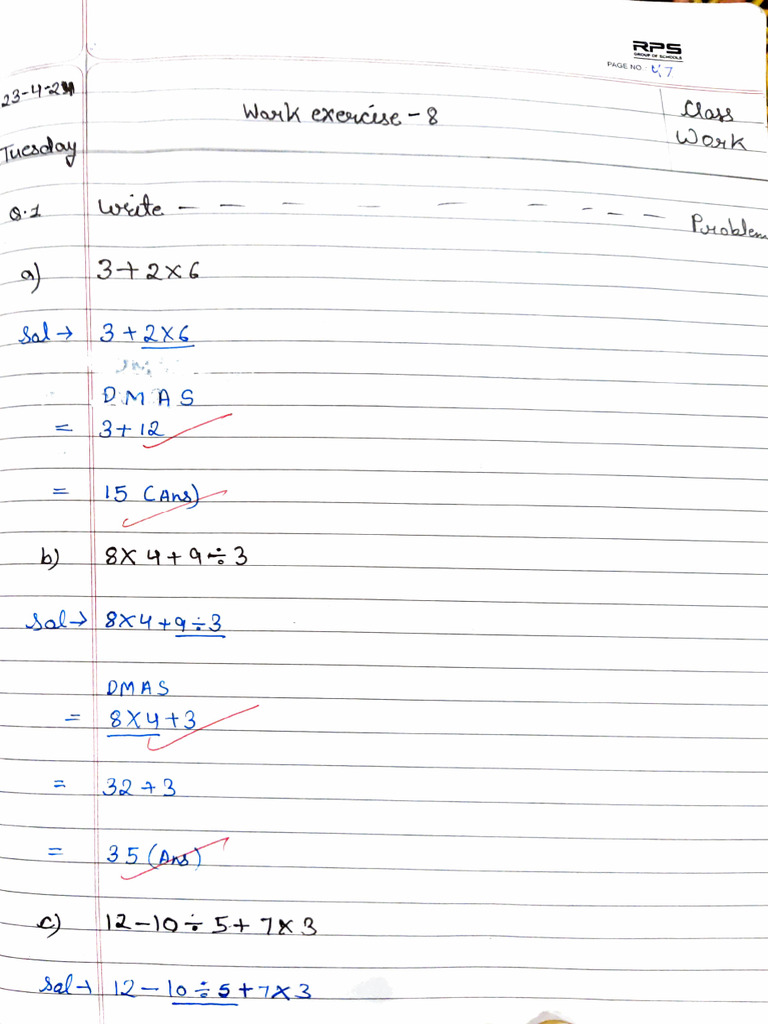 RPS
GROUP OF SCHOOLS
PAGE NO. 47
23-4-24
Work exercise - 8
Class
Work
Tuesday
Q.1 Write - - - - - - - - - Problem
a) 3+2×6
Sol → 3+2×6
DMAS
= 3+12
= 15 (Ans)
b) 8×4+9÷3
Sol → 8×4+9÷3
DMAS
= 8×4+3
= 32+3
= 35 (Ans)
c) 12-10÷5+7×3
Sol → 12-10÷5+7×3